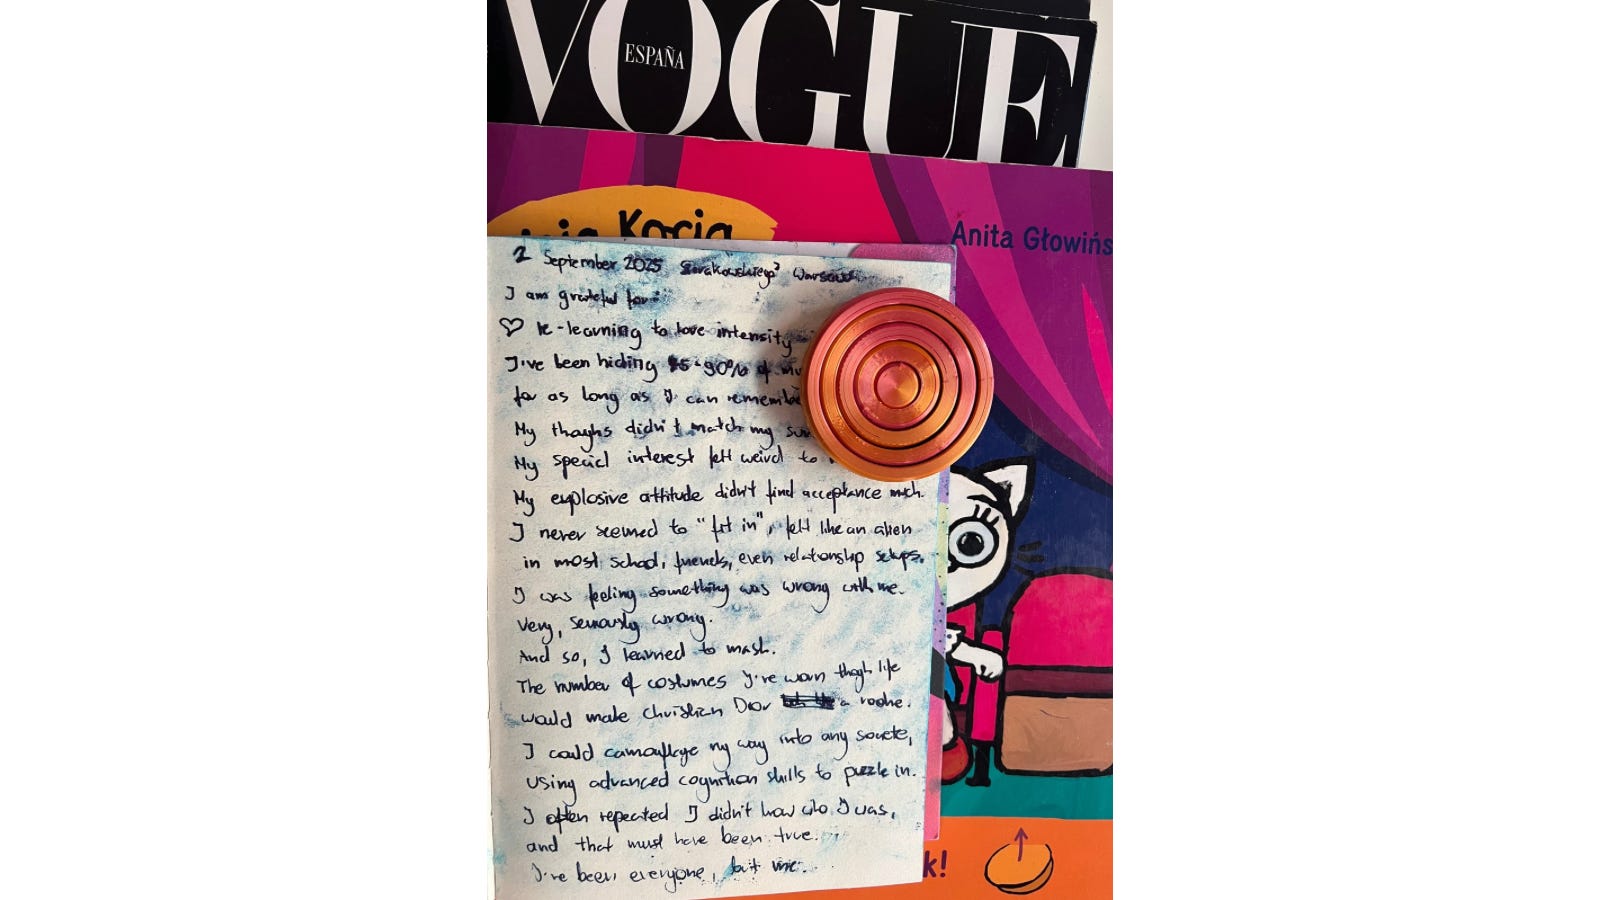 VOGUE
ESPAÑA
Kocia
Anita Głowińs
2 September 2025 Warsaw
I am grateful for:
♡ Re-learning to love intensity
I've been hiding 85-90% of my
for as long as I can remember
My thoghs didn't match my
My special interest felt weird to
My explosive attitude didn't find acceptance much.
I never seemed to "fit in", felt like an alien
in most school, friends, even relationship setups.
I was feeling something was wrong with me.
Very, seriously wrong.
And so, I learned to mask.
The number of costumes I've worn thogh life
would make Christian Dior a rookie.
I could camouflage my way into any societe,
Using advanced cognition skills to puzzle in.
I often repeated I didn't know who I was,
and that must have been true.
I've been everyone, but me.
k!